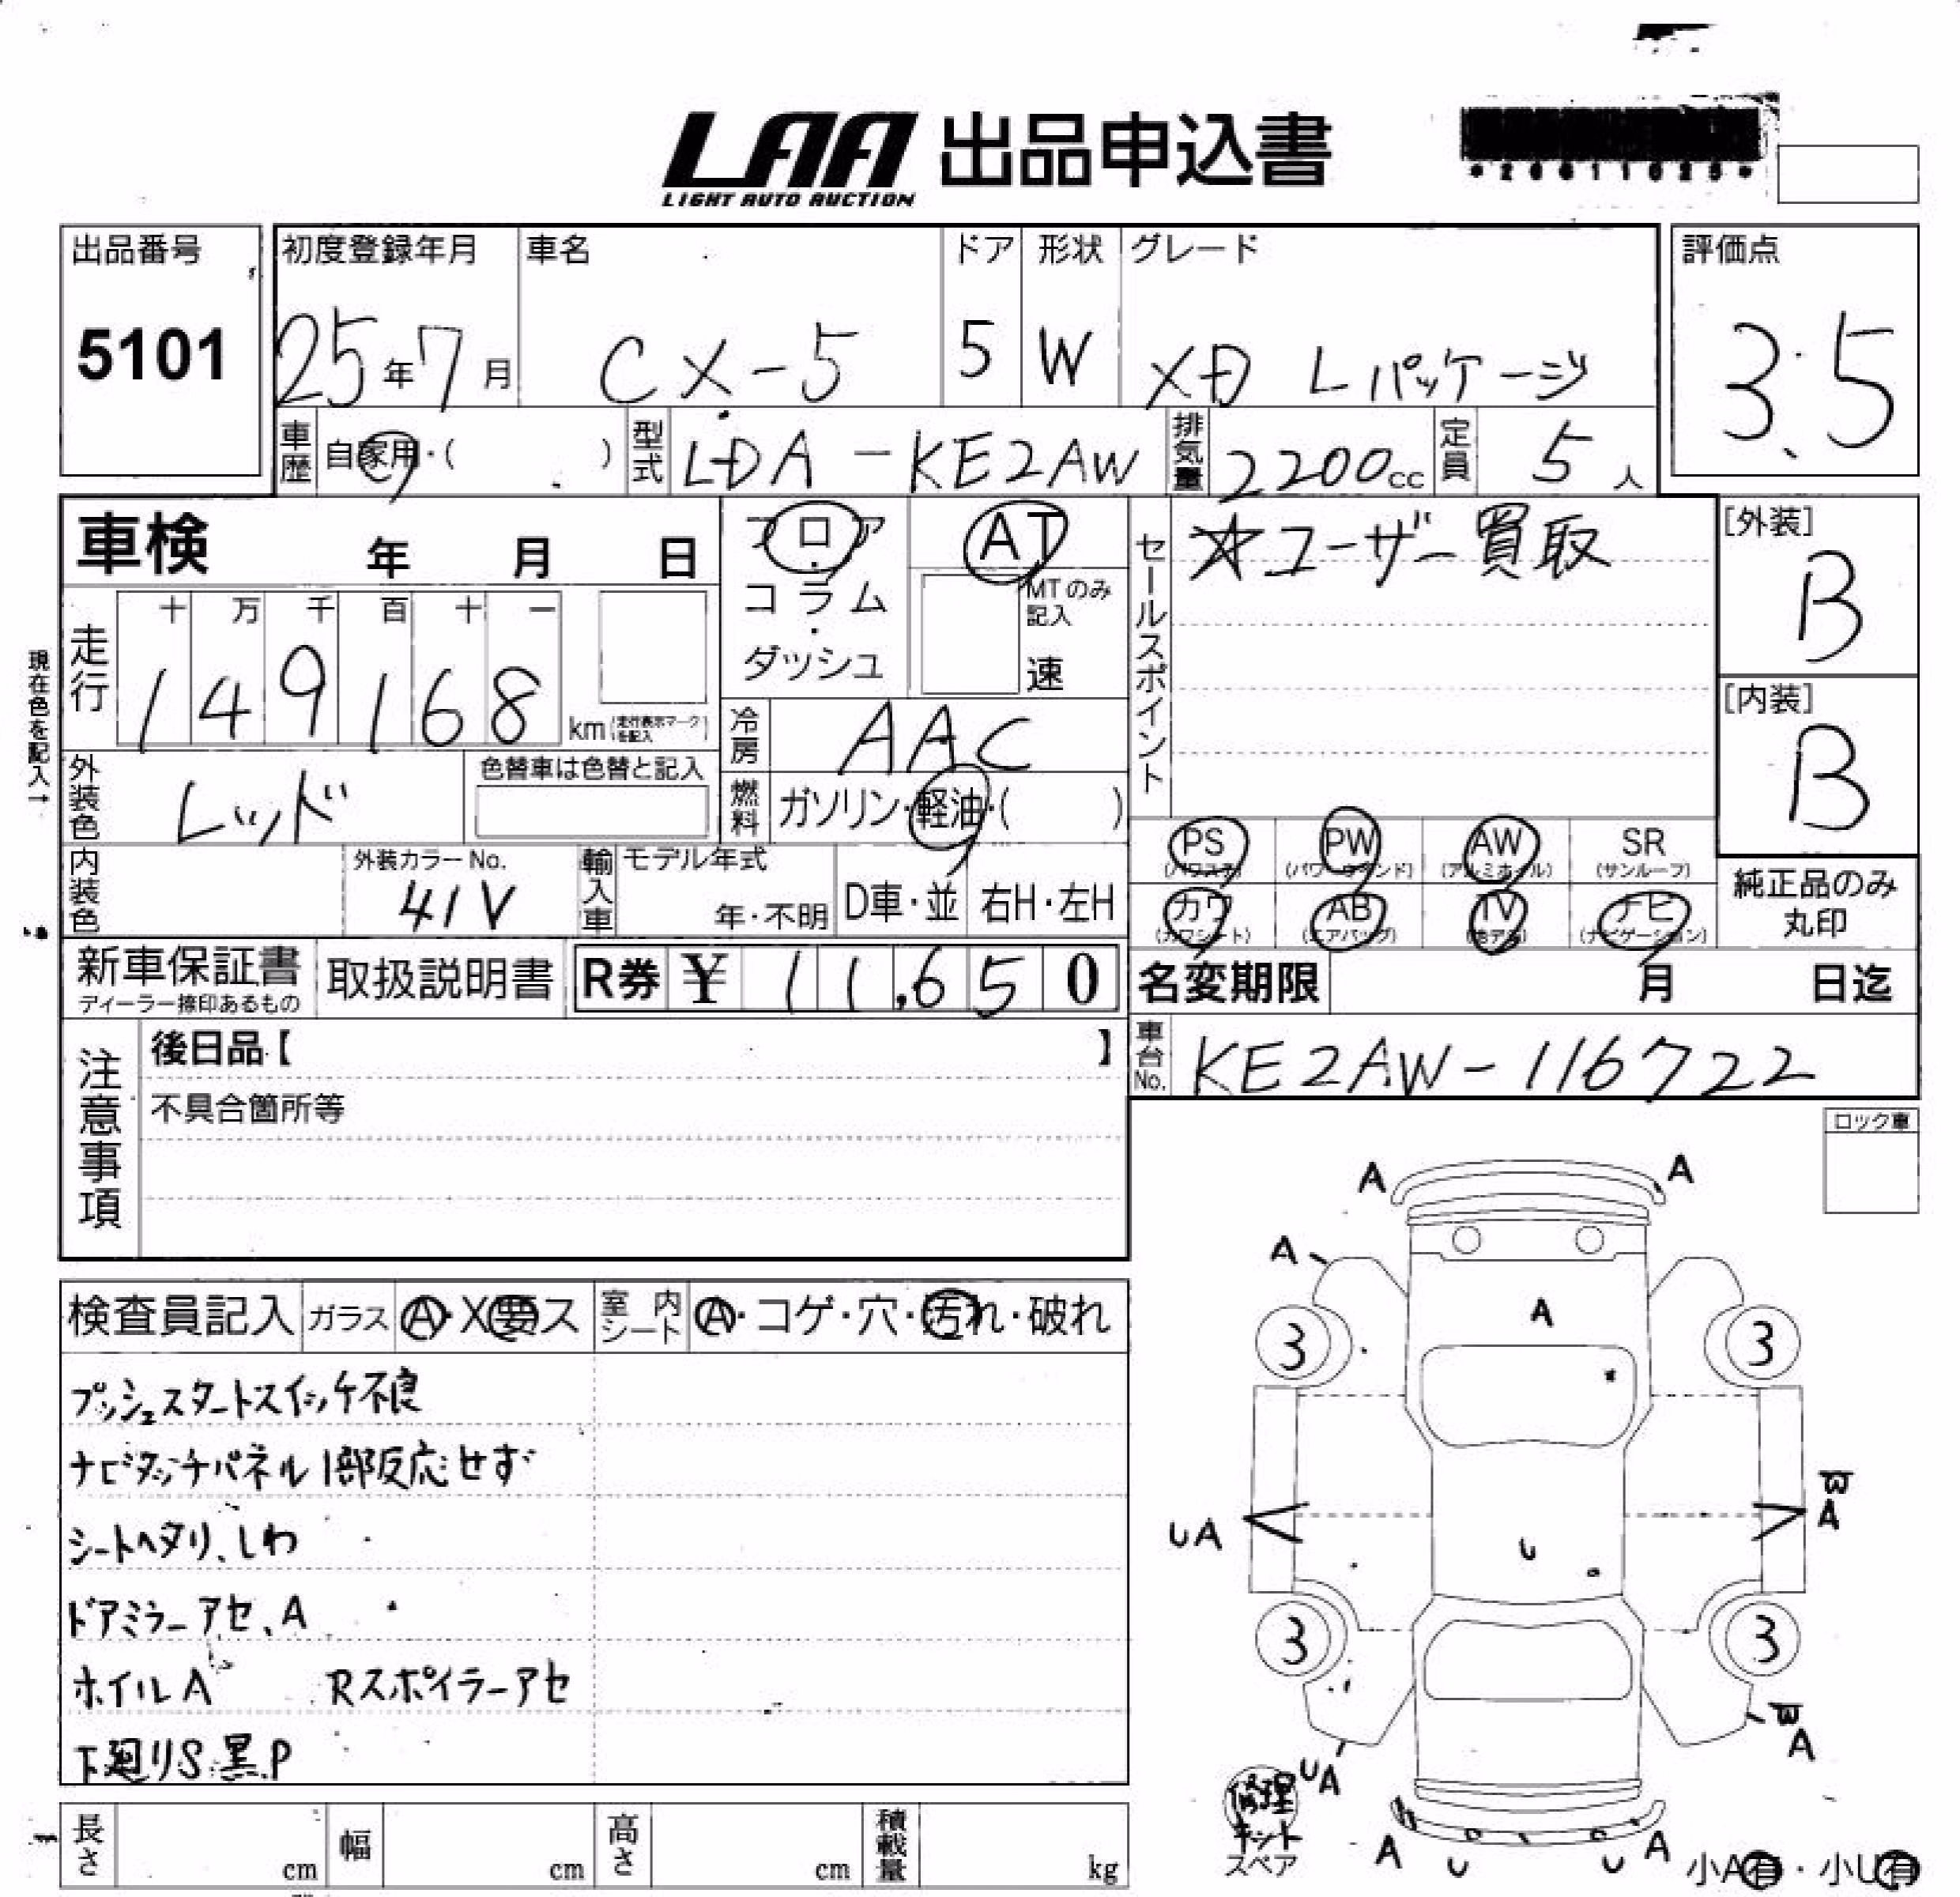 LAA 出品申込書
LIGHT AUTO AUCTION
出品番号
5101
初度登録年月
25年7月
車名
CX-5
ドア
5
形状
W
グレード
XD Lパッケージ
評価点
3.5
車歴 自家用・( )
型式 LDA-KE2AW
排気量 2200cc
定員 5人
車検 年 月 日
フロア・コラム・ダッシュ
AT
MTのみ記入
速
セールスポイント
☆ユーザー買取
[外装]
B
[内装]
B
現在色を記入→
走行 十 万 千 百 十 一
149168 km (走行表示マークを記入)
冷房 AAC
外装色 レッド
色替車は色替と記入
燃料 ガソリン・軽油・( )
内装色
外装カラーNo.
41V
輸入車
モデル年式
年・不明
D車・並
右H・左H
PS (パワステ)
PW (パワーウインド)
AW (アルミホイル)
SR (サンルーフ)
カワ (カワシート)
AB (エアバッグ)
TV (地デジ)
ナビ (ナビゲーション)
純正品のみ丸印
新車保証書
ディーラー捺印あるもの
取扱説明書
R券 ¥ 11,650
名変期限 月 日迄
車台No. KE2AW-116722
注意事項
後日品【 】
不具合箇所等
ロック車
検査員記入
ガラス A・X要ス
室内シート A・コゲ・穴・汚れ・破れ
プッシュスタートスイッチ不良
ナビタッチパネル1部反応せず
シートヘタリ、しわ
ドアミラーアセ、A
ホイルA Rスポイラーアセ
下廻りS黒P
A A
A
A
3 3
UA
A
U
3 3
UA
A
A U U A
修理キット
スペア
小A有・小U有
長さ cm
幅 cm
高さ cm
積載量 kg